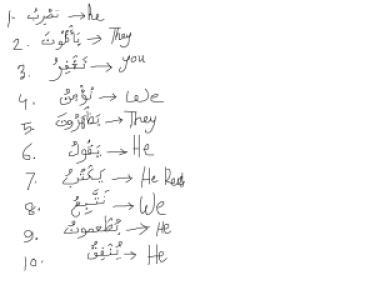 1. نَضْرِبُ → he
2. يَأْكُلُونَ → They
3. تَغْفِرُ → you
4. نُؤْمِنُ → We
5. يَظْهَرُونَ → They
6. يَقُولُ → He
7. يَكْتُبُ → He
8. نَتَّبِعُ → We
9. يُطْعِمُونَ → He
10. يُنْفِقُ → He